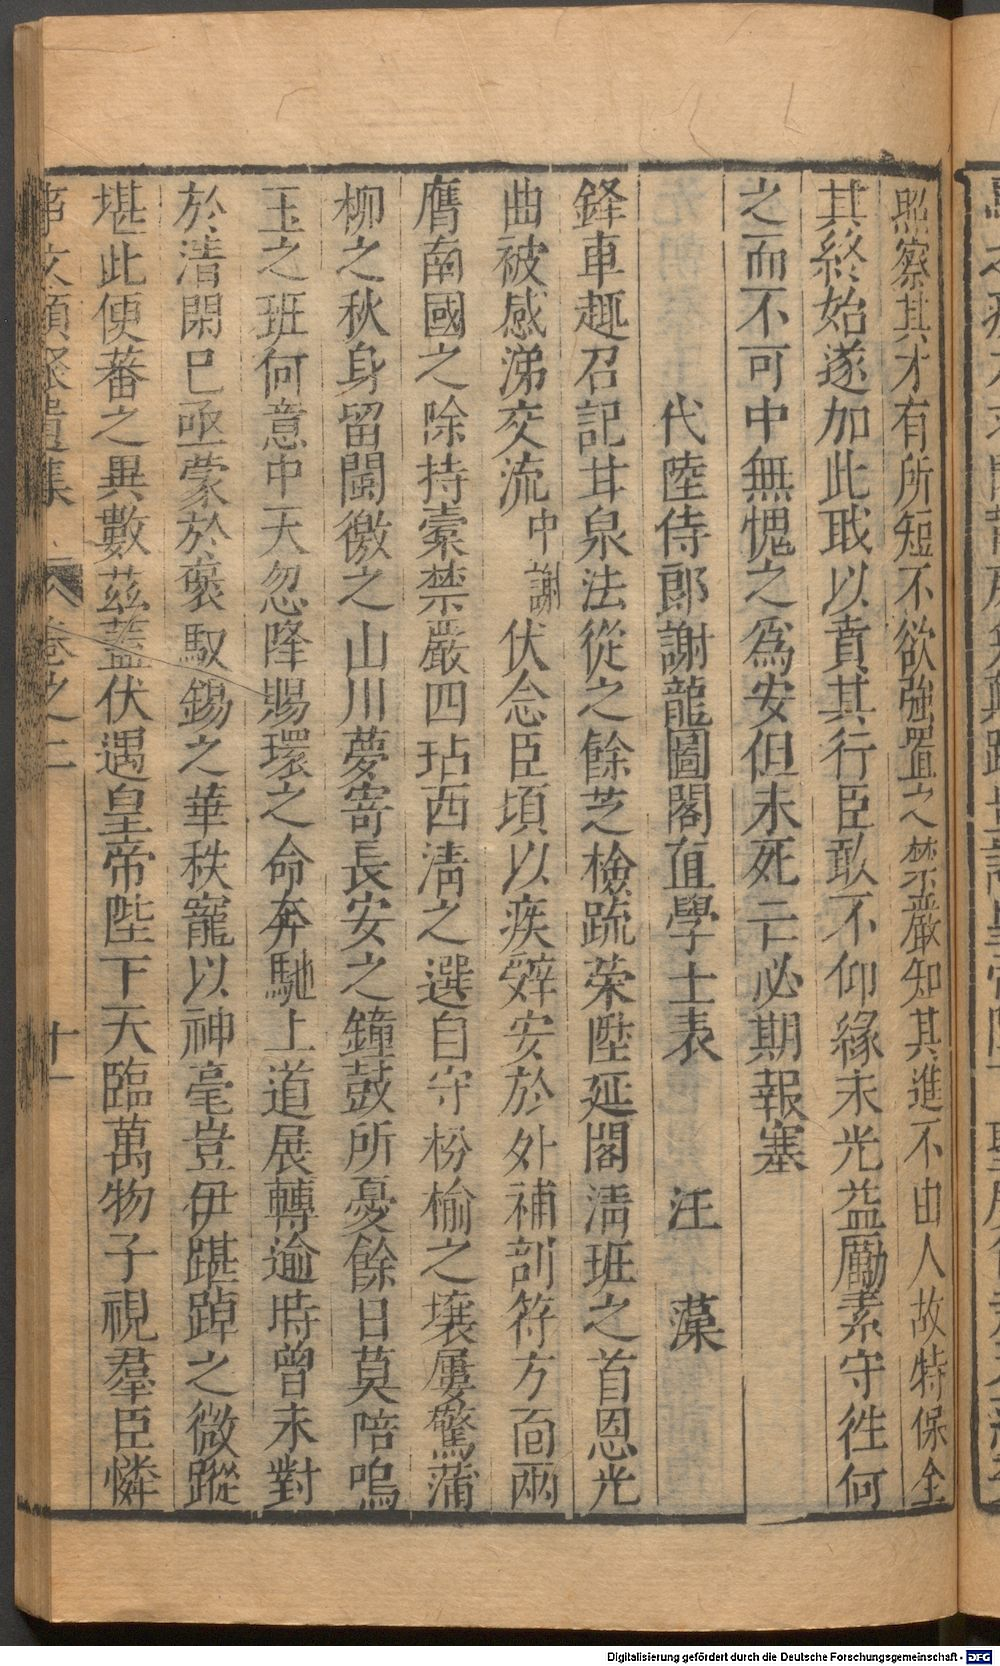 照察其才有所短不欲強置之禁嚴知其進不由人故特保全
其終始遂加此職以賁其行臣敢不仰緣末光益勵素守徃何
之而不可中無愧之爲安但未死亡必期報塞
代陸侍郎謝龍圖閣直學士表 汪 藻
鋒車趣召記甘泉法從之餘芝檢疏榮陞延閣淸班之首恩光
曲被感涕交流中謝伏念臣頃以疾辭安於外補剖符方面兩
膺南國之除持橐禁嚴四玷西淸之選自守枌榆之壤屢驚蒲
柳之秋身留閩徼之山川夢寄長安之鐘鼓所憂餘日莫陪鳴
玉之班何意中天忽降賜環之命奔馳上道展轉逾時曾未對
於淸閑已亟蒙於褒馭錫之華秩寵以神毫豈伊踸踔之微蹤
堪此便蕃之異數茲蓋伏遇皇帝陛下天臨萬物子視羣臣憐
事文類聚遺集 卷之二 十一
Digitalisierung gefördert durch die Deutsche Forschungsgemeinschaft - DFG